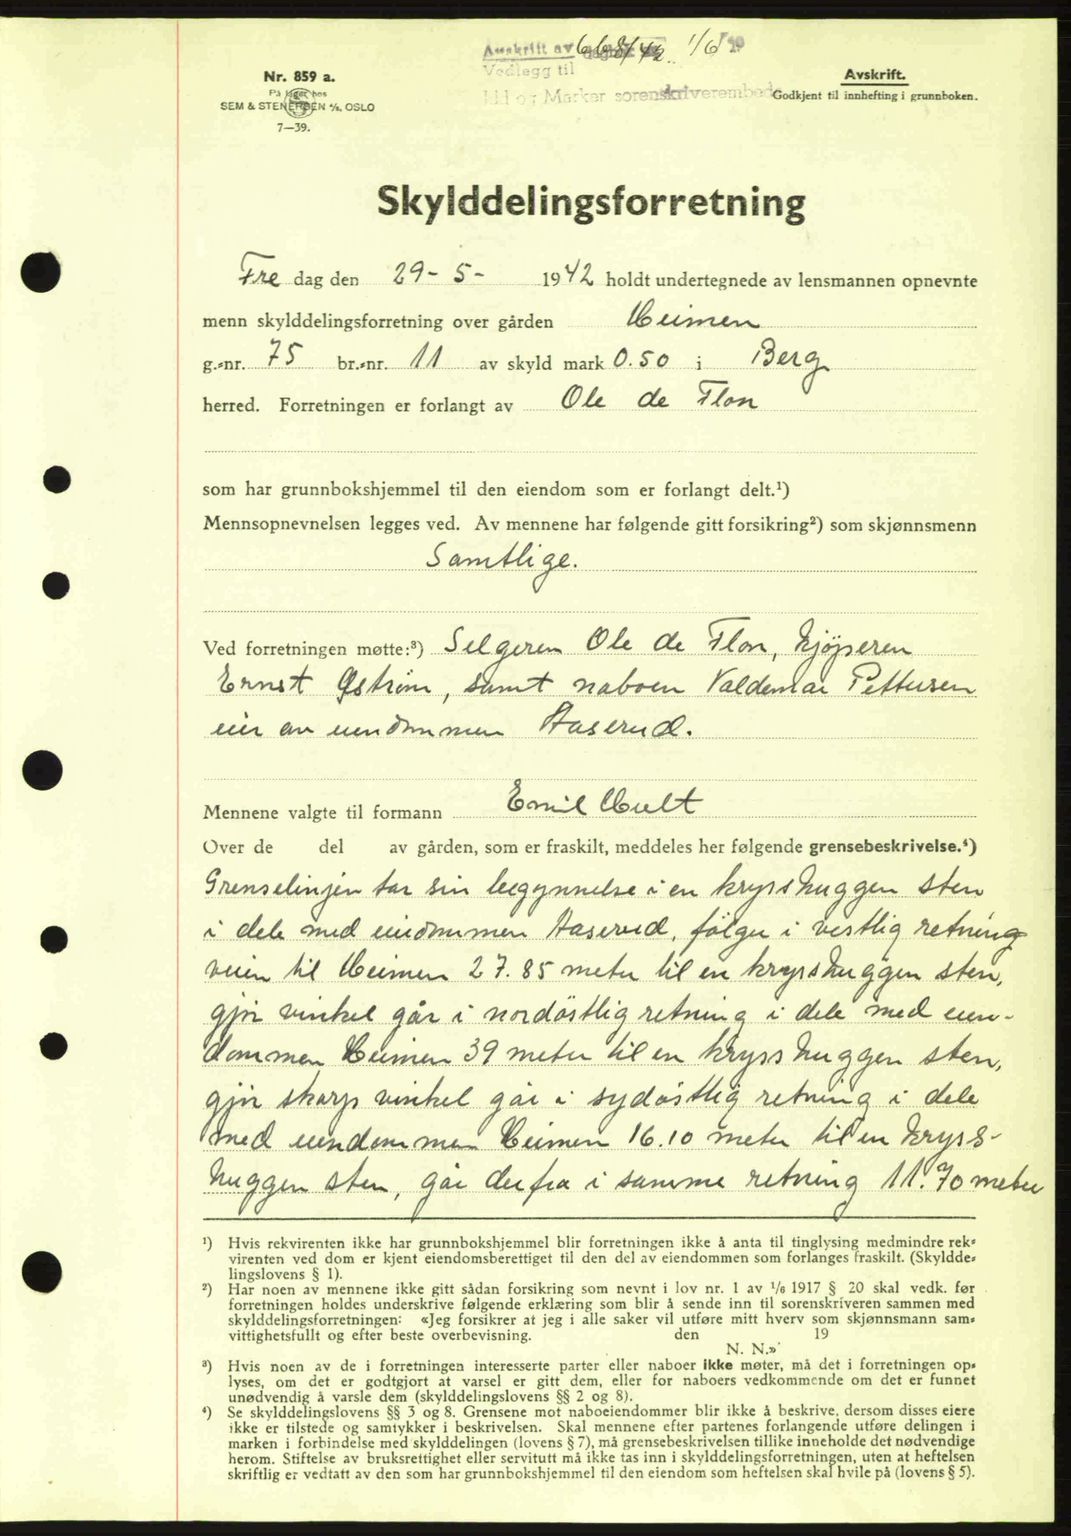 Avskrift av dagbok 668/42. 1/6 19
Vedlegg til
Idd og Marker sorenskriverembede
Nr. 859 a.
På lager hos
SEM & STENERSEN A/S. OSLO
7—39.
Avskrift.
Godkjent til innhefting i grunnboken.
Skylddelingsforretning
Fre dag den 29-5- 1942 holdt undertegnede av lensmannen opnevnte
menn skylddelingsforretning over gården Heimen
g.-nr. 75 br.-nr. 11 av skyld mark 0.50 i Berg
herred. Forretningen er forlangt av Ole de Flon
som har grunnbokshjemmel til den eiendom som er forlangt delt.¹)
Mennsopnevnelsen legges ved. Av mennene har følgende gitt forsikring²) som skjønnsmenn
Samtlige.
Ved forretningen møtte:³) Selgeren Ole de Flon, kjöperen
Ernst Østrøm, samt naboen Valdemar Pettersen
eier av eiendommen Haserud.
Mennene valgte til formann Emil Hult
Over de del av gården, som er fraskilt, meddeles her følgende grensebeskrivelse.⁴)
Grenselinjen tar sin begynnelse i en krysshuggen sten
i dele med eiendommen Haserud, følger i vestlig retning
veien til Heimen 27.85 meter til en krysshuggen sten,
gjör vinkel går i nordöstlig retning i dele med eien-
dommen Heimen 39 meter til en krysshuggen sten,
gjör skarp vinkel går i sydöstlig retning i dele
med eiendommen Heimen 16.10 meter til en kryss-
huggen sten, går derfra i samme retning 11.70 meter
¹) Hvis rekvirenten ikke har grunnbokshjemmel blir forretningen ikke å anta til tinglysing medmindre rek-
virenten ved dom er kjent eiendomsberettiget til den del av eiendommen som forlanges fraskilt. (Skyldde-
lingslovens § 1).
²) Har noen av mennene ikke gitt sådan forsikring som nevnt i lov nr. 1 av 1/6 1917 § 20 skal vedk. før
forretningen holdes underskrive følgende erklæring som blir å sende inn til sorenskriveren sammen med
skylddelingsforretningen: «Jeg forsikrer at jeg i alle saker vil utføre mitt hverv som skjønnsmann sam-
vittighetsfullt og efter beste overbevisning. den 19
N. N.»
³) Hvis noen av de i forretningen interesserte parter eller naboer ikke møter, må det i forretningen op-
lyses, om det er godtgjort at varsel er gitt dem, eller for naboers vedkommende om det er funnet
unødvendig å varsle dem (skylddelingslovens §§ 2 og 8).
⁴) Se skylddelingslovens §§ 3 og 8. Grensene mot naboeiendommer blir ikke å beskrive, dersom disses eiere
ikke er tilstede og samtykker i beskrivelsen. Skal mennene efter partenes forlangende utføre delingen i
marken i forbindelse med skylddelingen (lovens § 7), må grensebeskrivelsen tillike inneholde det nødvendige
herom. Stiftelse av bruksrettighet eller servitutt må ikke tas inn i skylddelingsforretningen, uten at heftelsen
skriftlig er vedtatt av den som har grunnbokshjemmel til den eiendom som heftelsen skal hvile på (lovens § 5).